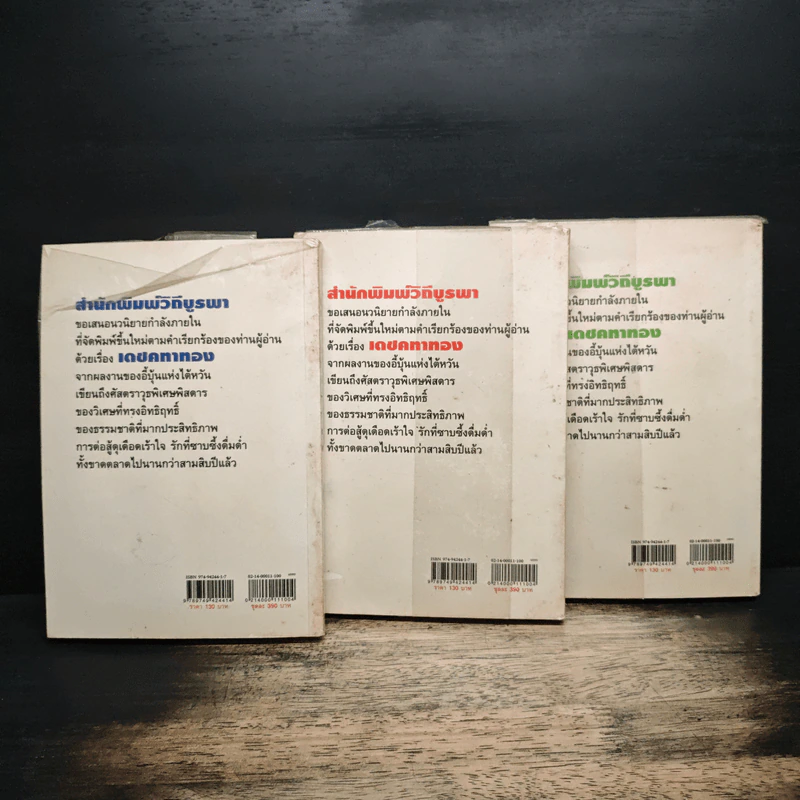 สำนักพิมพ์วิถีบูรพา
ขอเสนอนวนิยายกำลังภายใน
ที่จัดพิมพ์ขึ้นใหม่ตามคำเรียกร้องของท่านผู้อ่าน
ด้วยเรื่อง เดชคทาทอง
จากผลงานของอี้บุ้นแห่งไต้หวัน
เขียนถึงศัสตราวุธพิเศษพิสดาร
ของวิเศษที่ทรงอิทธิฤทธิ์
ของธรรมชาติที่มากประสิทธิภาพ
การต่อสู้ดุเดือดเร้าใจ รักที่ซาบซึ้งดื่มด่ำ
ทั้งขาดตลาดไปนานกว่าสามสิบปีแล้ว
ISBN 974-94244-1-7
02-14-00011-100
9 789749 424414
0 214000 111004
ราคา 130 บาท
ชุดละ 390 บาท
สำนักพิมพ์วิถีบูรพา
ขอเสนอนวนิยายกำลังภายใน
ที่จัดพิมพ์ขึ้นใหม่ตามคำเรียกร้องของท่านผู้อ่าน
ด้วยเรื่อง เดชคทาทอง
จากผลงานของอี้บุ้นแห่งไต้หวัน
เขียนถึงศัสตราวุธพิเศษพิสดาร
ของวิเศษที่ทรงอิทธิฤทธิ์
ของธรรมชาติที่มากประสิทธิภาพ
การต่อสู้ดุเดือดเร้าใจ รักที่ซาบซึ้งดื่มด่ำ
ทั้งขาดตลาดไปนานกว่าสามสิบปีแล้ว
ISBN 974-94244-1-7
02-14-00011-100
9 789749 424414
0 214000 111004
ราคา 130 บาท
ชุดละ 390 บาท
พิมพ์วิถีบูรพา
นวนิยายกำลังภายใน
ขึ้นใหม่ตามคำเรียกร้องของท่านผู้อ่าน
เดชคทาทอง
ของอี้บุ้นแห่งไต้หวัน
ศัสตราวุธพิเศษพิสดาร
ที่ทรงอิทธิฤทธิ์
ชาติที่มากประสิทธิภาพ
ดุเดือดเร้าใจ รักที่ซาบซึ้งดื่มด่ำ
ลาดไปนานกว่าสามสิบปีแล้ว
ISBN 974-94244-1-7
02-14-00011-100
9 789749 424414
0 214000 111004
ราคา 130 บาท
ชุดละ 390 บาท